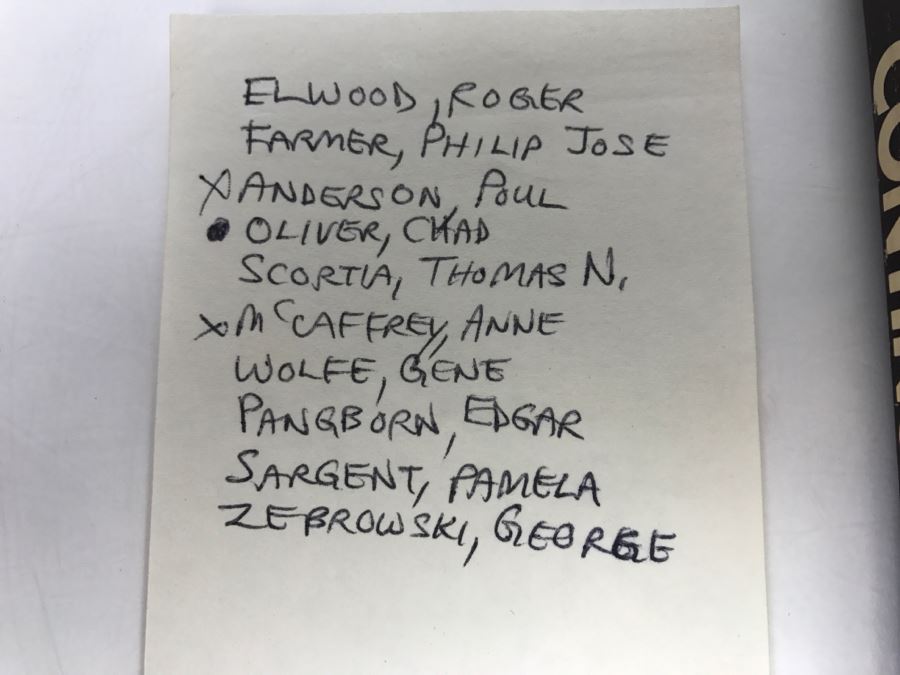 ELWOOD, ROGER
FARMER, PHILIP JOSE
X ANDERSON, POUL
● OLIVER, CHAD
SCORTIA, THOMAS N.
X McCAFFREY, ANNE
WOLFE, GENE
PANGBORN, EDGAR
SARGENT, PAMELA
ZEBROWSKI, GEORGE